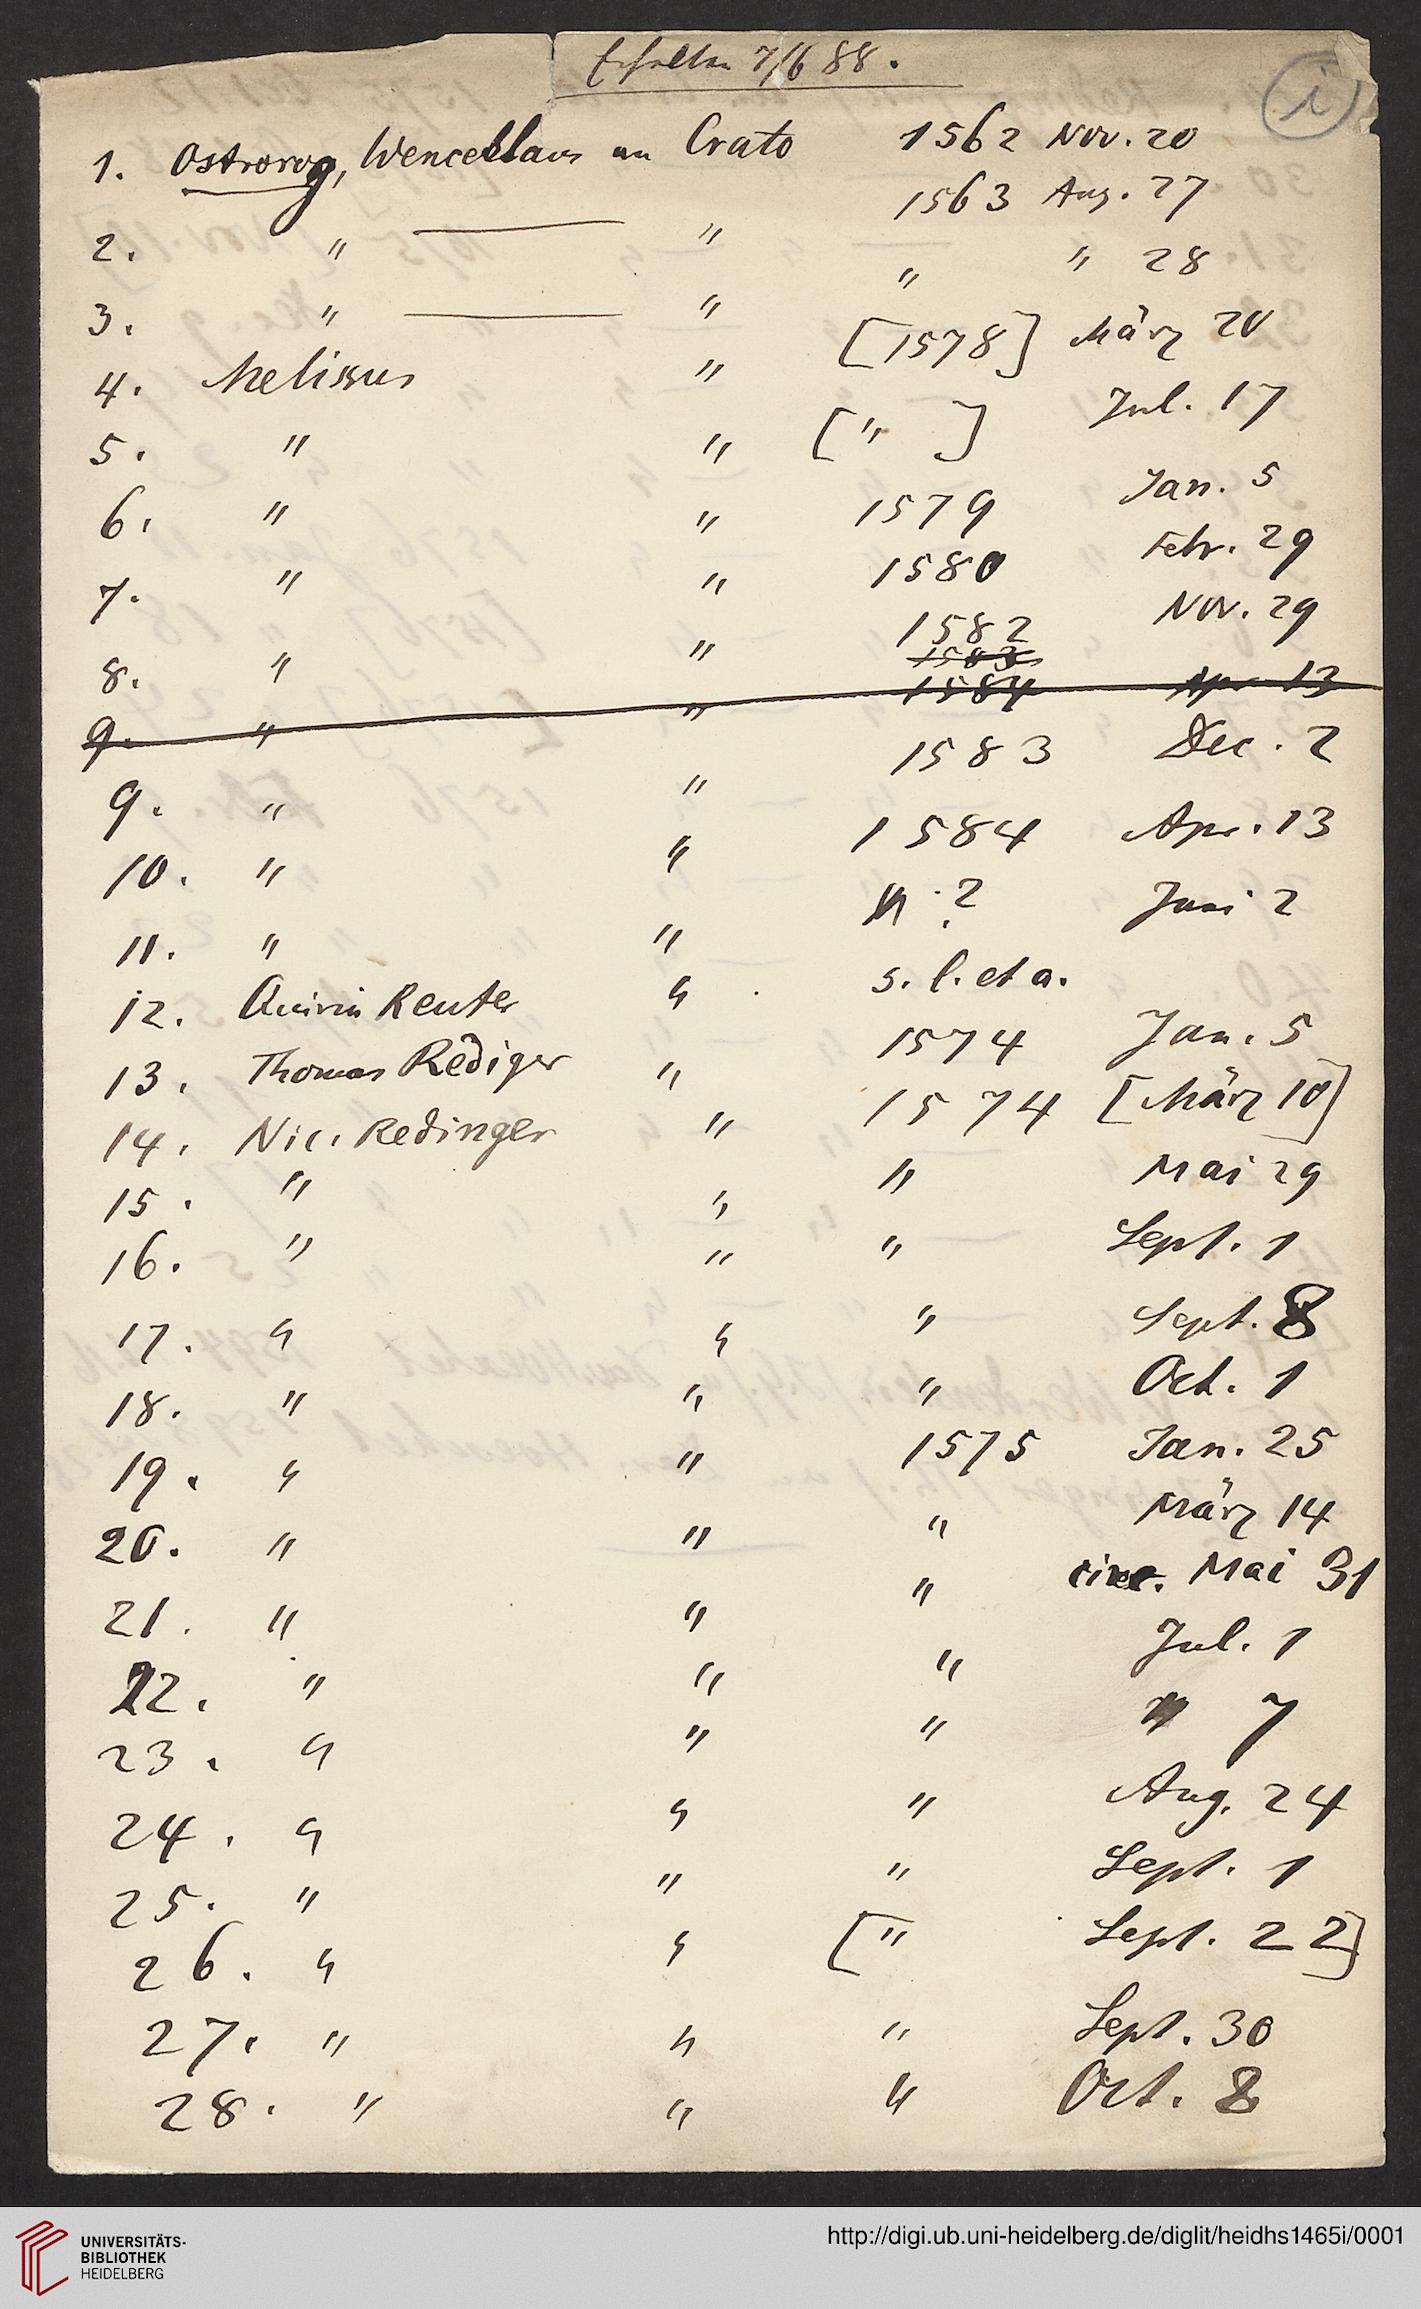 Erhalten 7/6 88.
i
1. Ostrorog, Wenceslaus an Crato 1562 Nov. 20
2. " — " 1563 Aug. 27
3. " — " " " 28
4. Melissus " [1578] März 20
5. " " [" ] Jul. 17
6. " " 1579 Jan. 5
7. " " 1580 Febr. 29
8. " " 1582 Nov. 29
1583
9. " " 1584 Apr 13
9. " " 1583 Dec. 2
10. " " 1584 Apr. 13
11. " " " ? Juni 2
12. Quirin Reuter " s. l. et a.
13. Thomas Rediger " 1574 Jan. 5
14. Nic. Redinger " 1574 [März 10]
15. " " " Mai 29
16. " " " Sept. 1
17. " " " Sept. 8
18. " " " Oct. 1
19. " " 1575 Jan. 25
20. " " " März 14
21. " " " circ. Mai 31
22. " " " Jul. 1
23. " " " " 7
24. " " " Aug. 24
25. " " " Sept. 1
26. " " [" Sept. 22]
27. " " " Sept. 30
28. " " " Oct. 8
UNIVERSITÄTS-
BIBLIOTHEK
HEIDELBERG
http://digi.ub.uni-heidelberg.de/diglit/heidhs1465i/0001